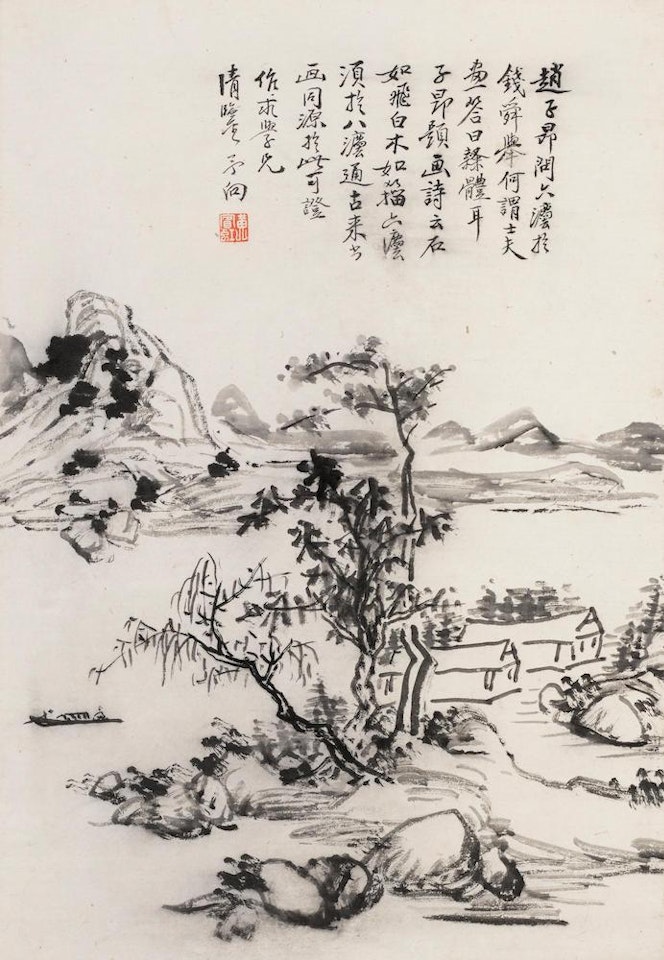 趙子昂問六灋於
錢舜舉何謂士夫
畫答曰隸體耳
子昂題画詩云石
如飛白木如籀六灋
須於八灋通古来书
画同源於此可證
作求學兄
清鑒 予向